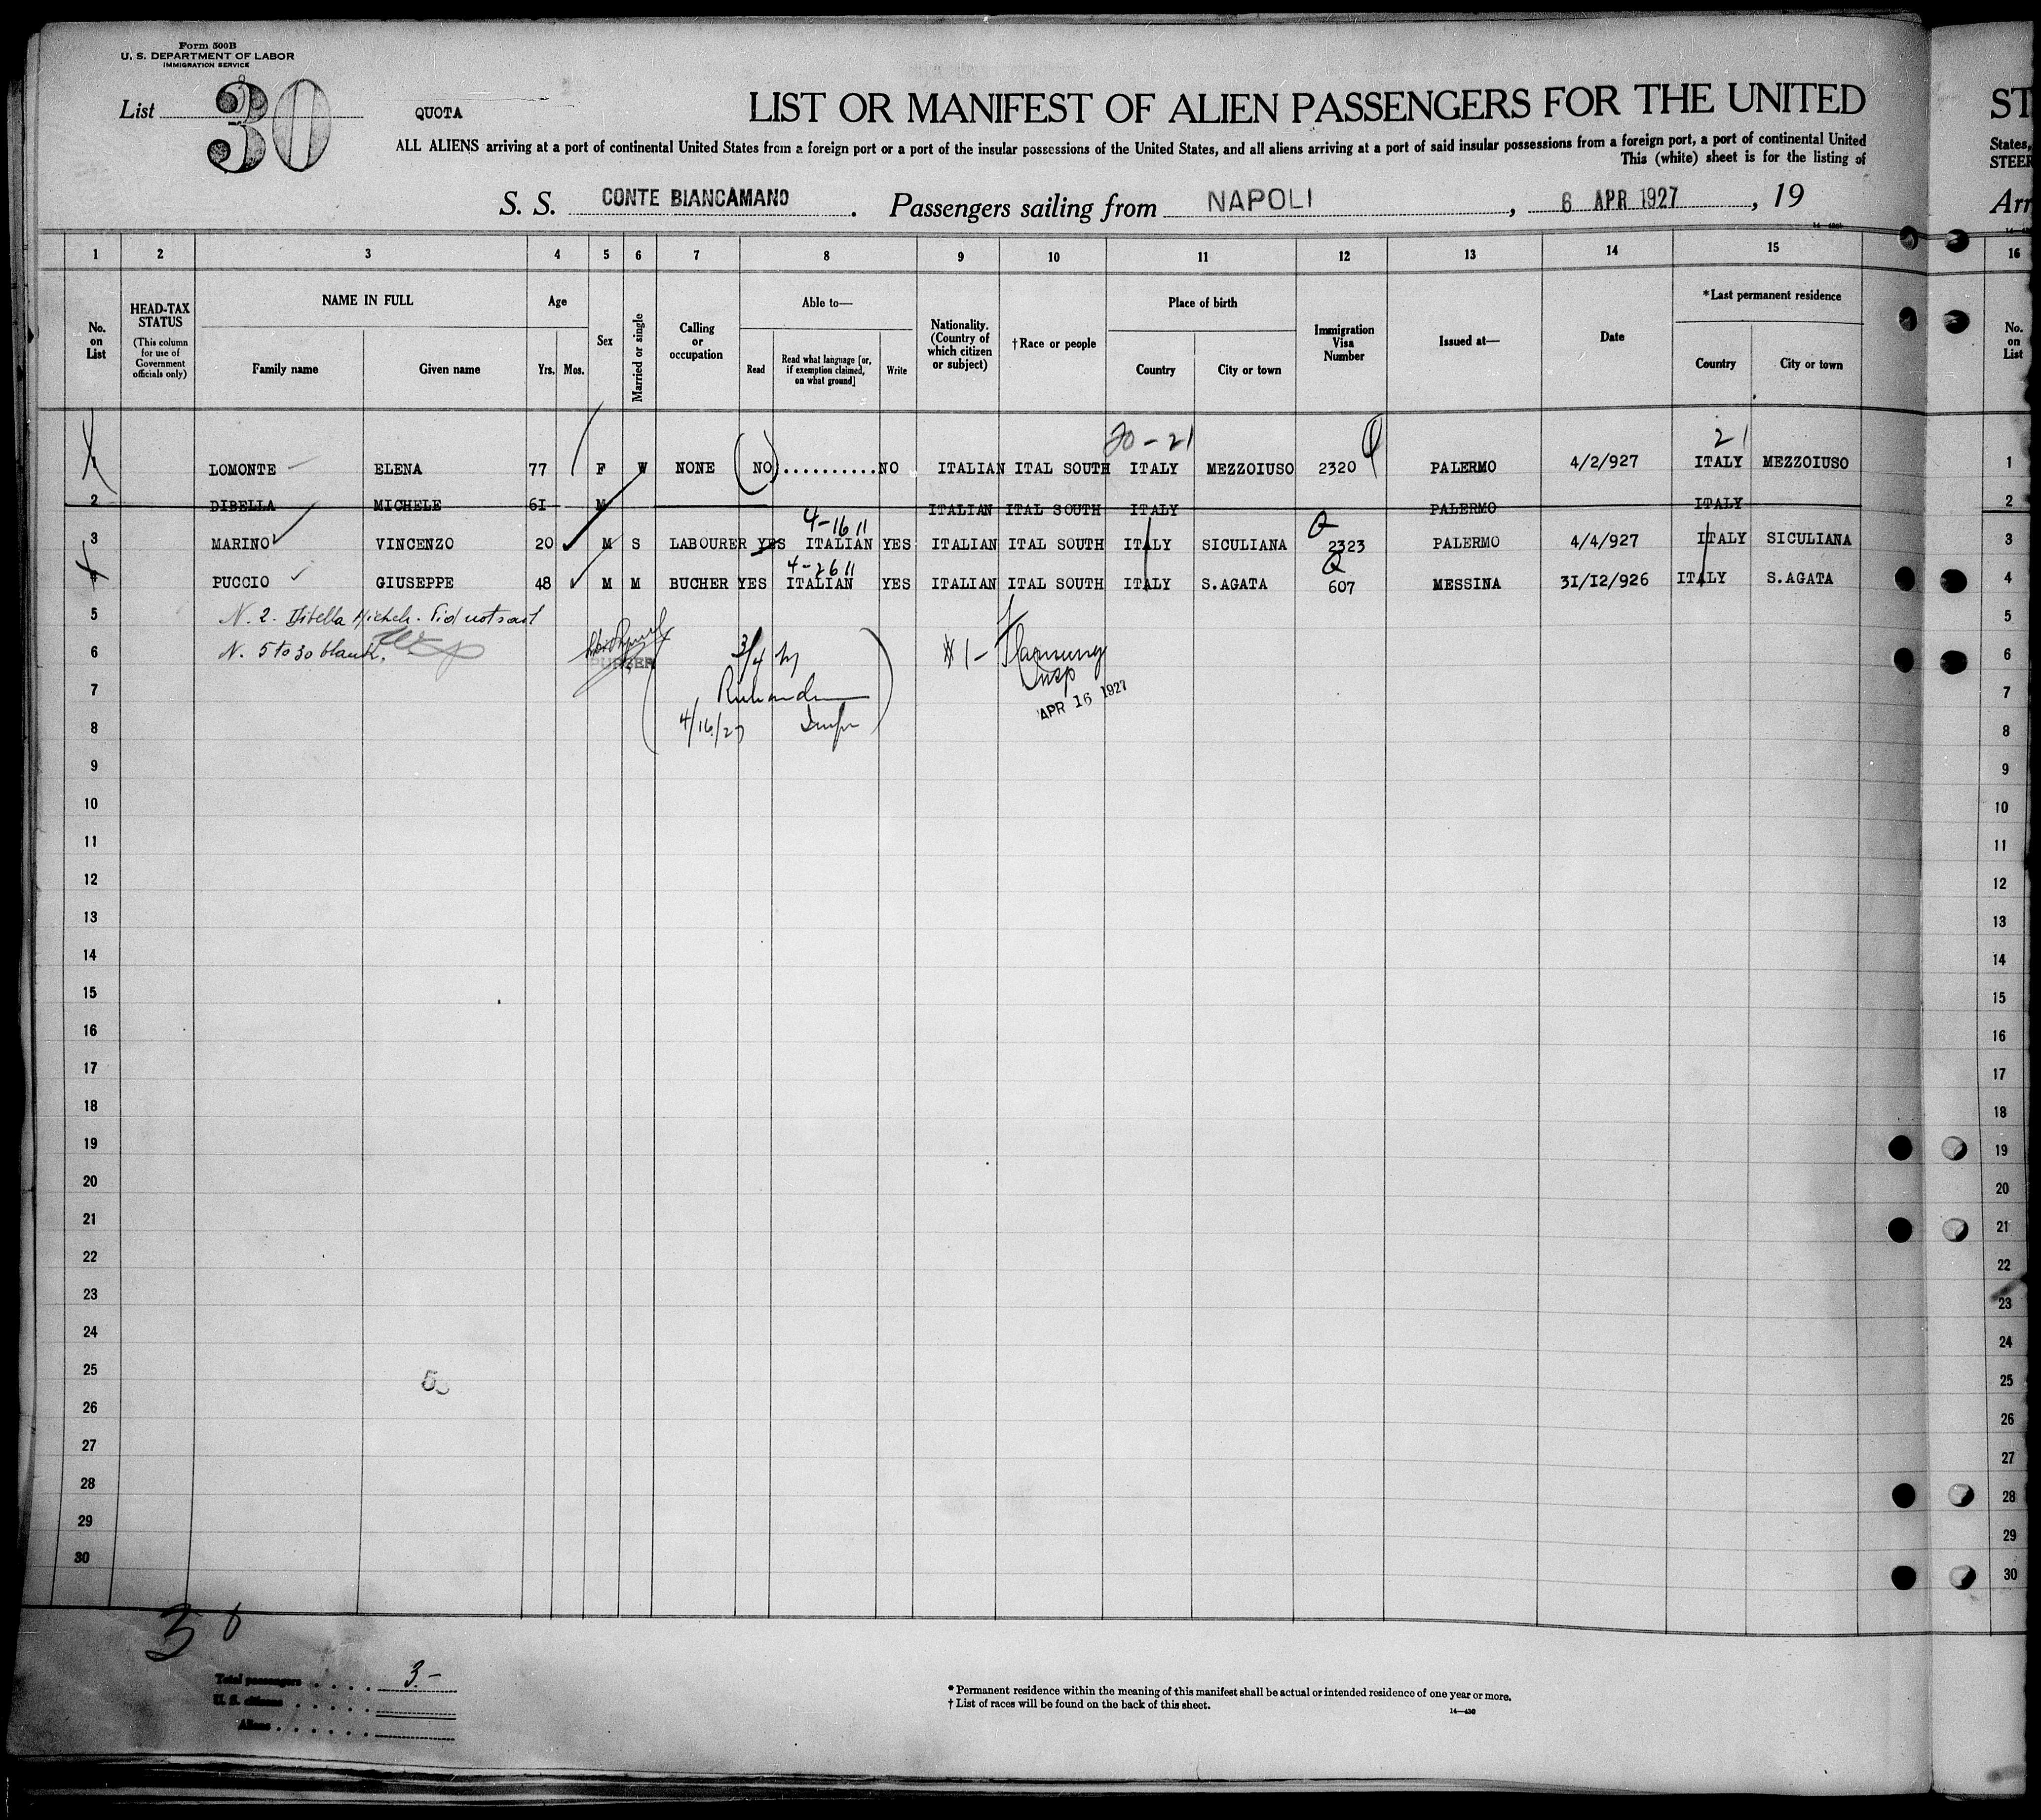 Form 500B
U. S. DEPARTMENT OF LABOR
IMMIGRATION SERVICE
List 30
QUOTA
LIST OR MANIFEST OF ALIEN PASSENGERS FOR THE UNITED
ST
ALL ALIENS arriving at a port of continental United States from a foreign port or a port of the insular possessions of the United States, and all aliens arriving at a port of said insular possessions from a foreign port, a port of continental United
States,
This (white) sheet is for the listing of
STEER
S. S. CONTE BIANCAMANO. Passengers sailing from NAPOLI, 6 APR 1927, 19
Arr
1 2 3 4 5 6 7 8 9 10 11 12 13 14 15 16
No. on List
HEAD-TAX STATUS
(This column for use of Government officials only)
NAME IN FULL
Family name Given name
Age
Yrs. Mos.
Sex
Married or single
Calling or occupation
Able to—
Read
Read what language [or, if exemption claimed, on what ground]
Write
Nationality. (Country of which citizen or subject)
†Race or people
Place of birth
Country City or town
Immigration Visa Number
Issued at—
Date
*Last permanent residence
Country City or town
No. on List
20-21 21
1 LOMONTE ELENA 77 F W NONE (NO)..........NO ITALIAN ITAL SOUTH ITALY MEZZOIUSO 2320 PALERMO 4/2/927 ITALY MEZZOIUSO 1
2 DIBELLA MICHELE 61 M ITALIAN ITAL SOUTH ITALY PALERMO ITALY 2
4-16 11 Q
3 MARINO VINCENZO 20 M S LABOURER YES ITALIAN YES ITALIAN ITAL SOUTH ITALY SICULIANA 2323 PALERMO 4/4/927 ITALY SICULIANA 3
4-26 11 Q
4 PUCCIO GIUSEPPE 48 M M BUCHER YES ITALIAN YES ITALIAN ITAL SOUTH ITALY S.AGATA 607 MESSINA 31/12/926 ITALY S.AGATA 4
5 N. 2. Dibella Michele. Did not sail 5
6 N. 5 to 30 blank. PURSER 3/4 #1- Insp 6
7 APR 16 1927 7
8 4/16/27 8
9 9
10 10
11 11
12 12
13 13
14 14
15 15
16 16
17 17
18 18
19 19
20 20
21 21
22 22
23 23
24 24
25 25
26 26
27 27
28 28
29 29
30 30
30
Total passengers . . . . 3-
U. S. citizens . . . . .
Aliens . . . . . .
* Permanent residence within the meaning of this manifest shall be actual or intended residence of one year or more.
† List of races will be found on the back of this sheet.
14—430